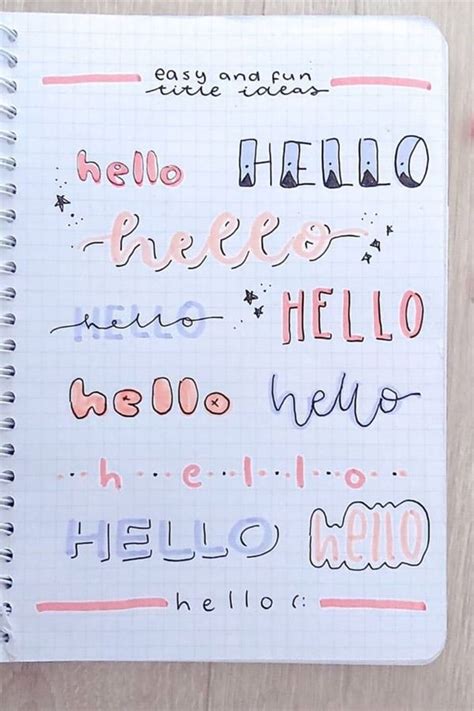 easy and fun
title ideas
hello HELLO
hello
hello HELLO HELLO
hello hello
h e l l o
HELLO hello
hello (: